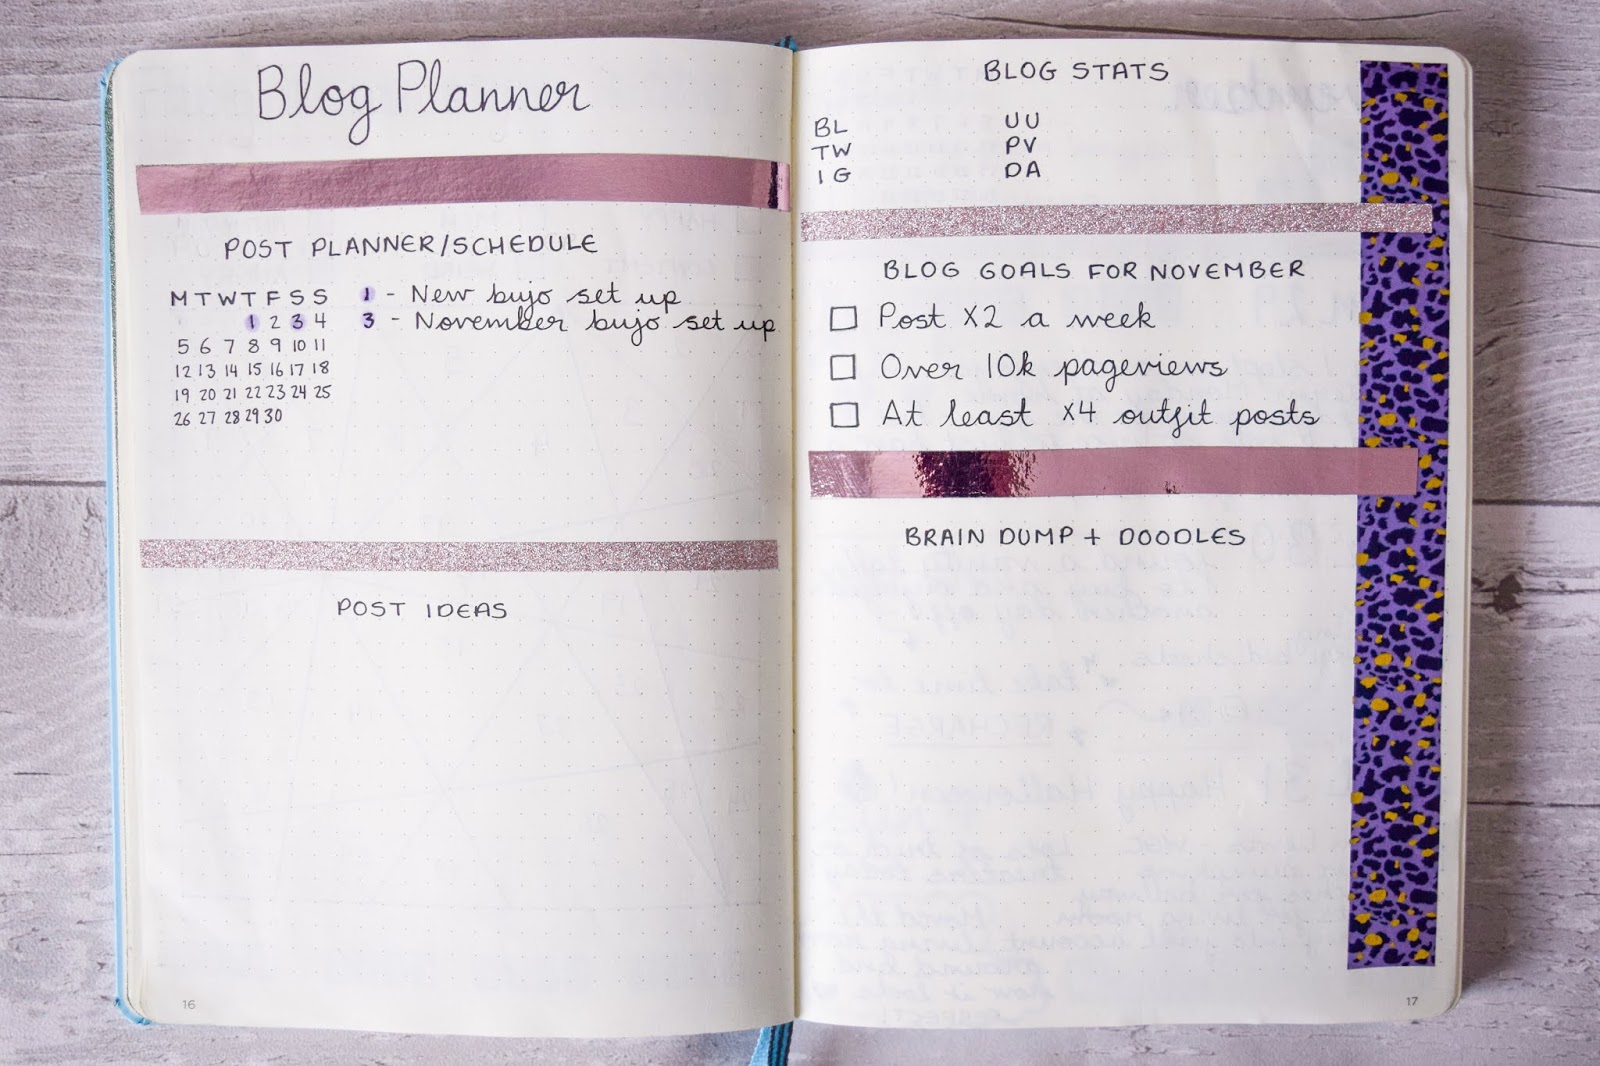 Blog Planner
POST PLANNER/SCHEDULE
M T W T F S S
1 2 3 4
5 6 7 8 9 10 11
12 13 14 15 16 17 18
19 20 21 22 23 24 25
26 27 28 29 30
1 - New bujo set up
3 - November bujo set up
POST IDEAS
16
BLOG STATS
BL UU
TW PV
IG DA
BLOG GOALS FOR NOVEMBER
Post x2 a week
Over 10k pageviews
At least x4 outfit posts
BRAIN DUMP + DOODLES
17